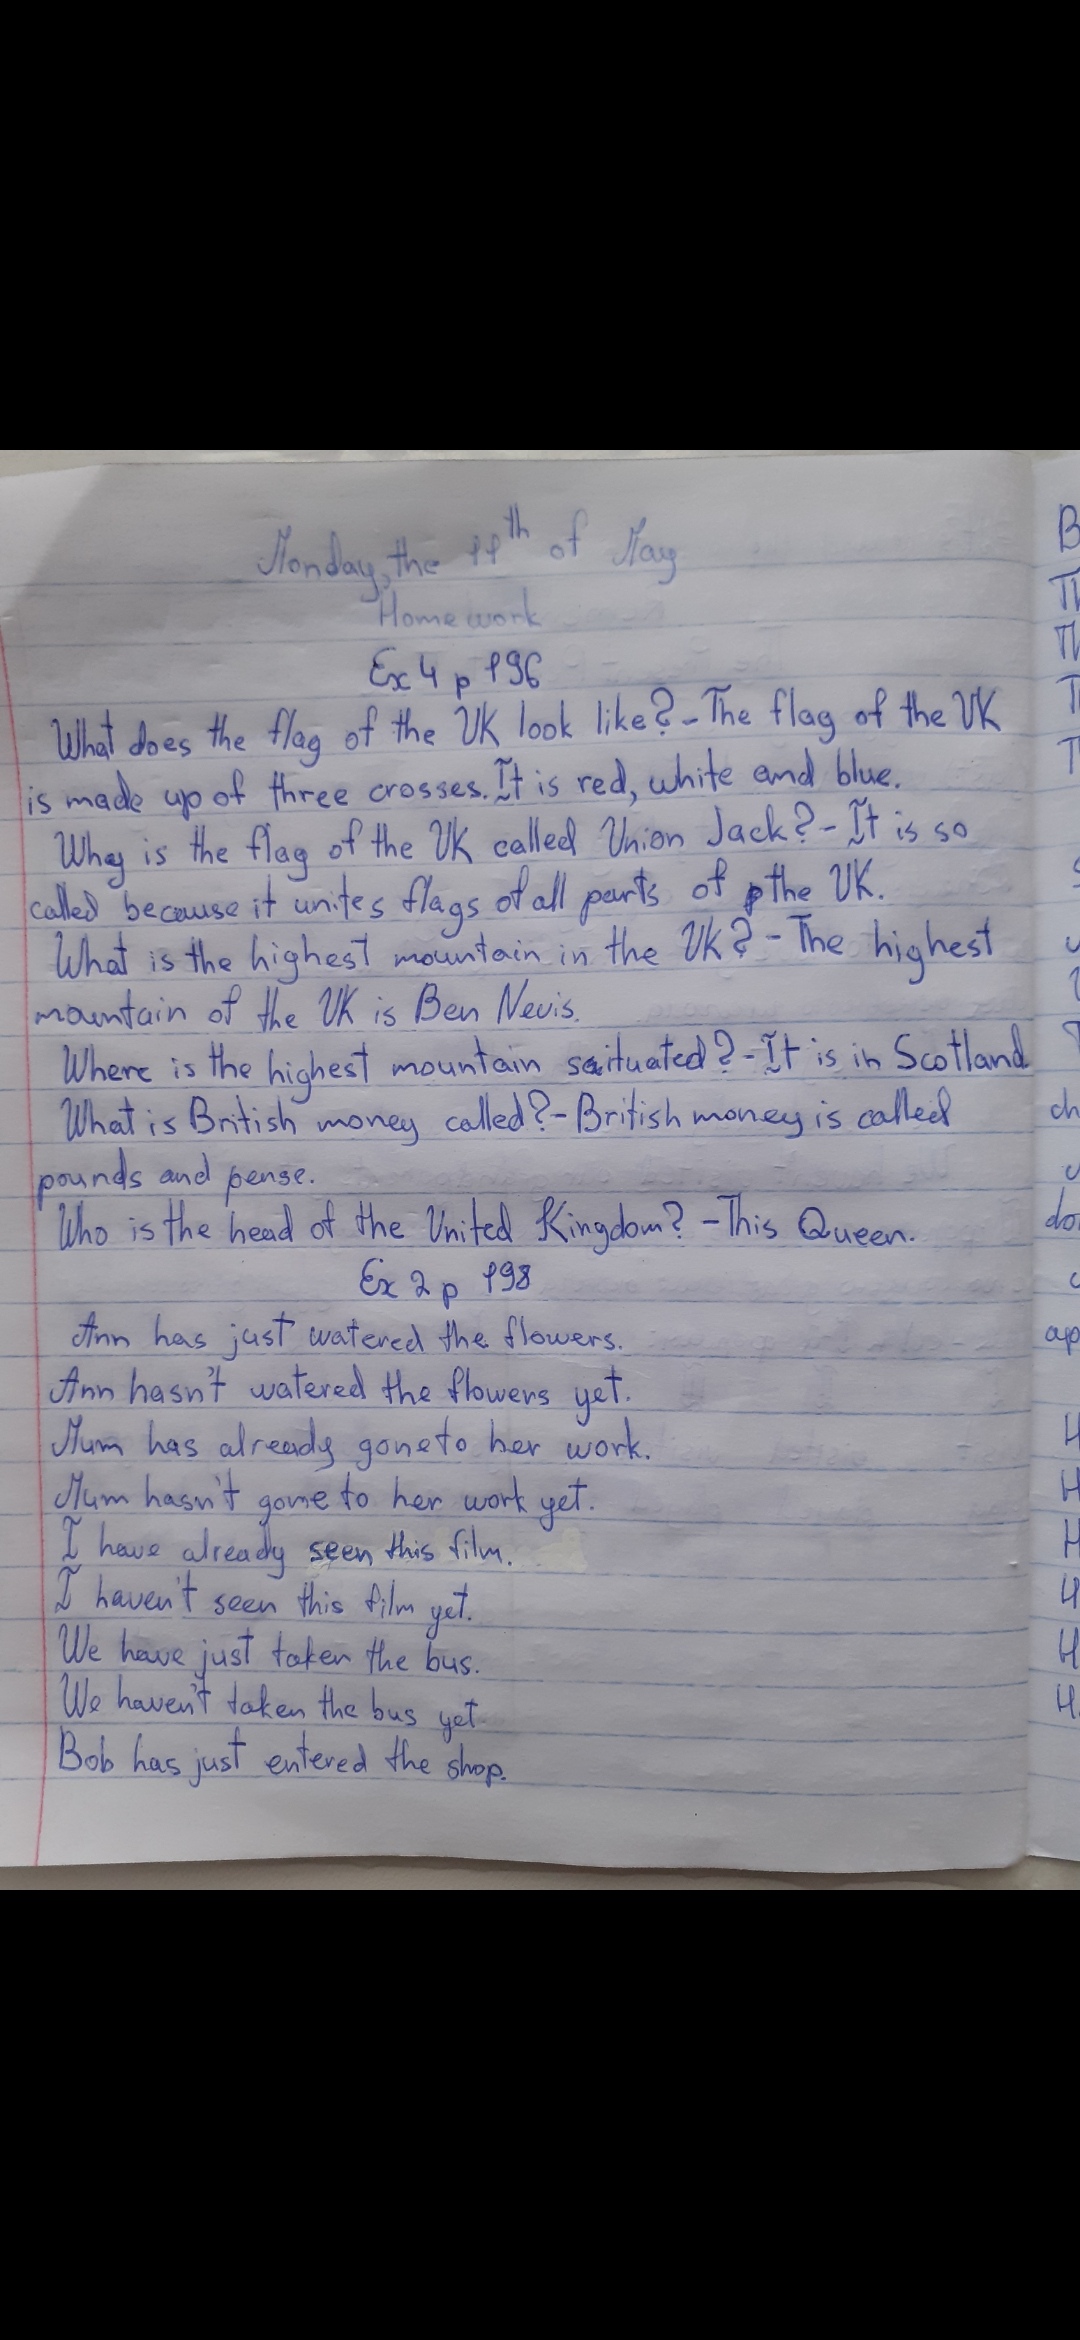 Monday, the 11th of May
Homework
Ex 4 p 196
What does the flag of the UK look like? - The flag of the UK
is made up of three crosses. It is red, white and blue.
Why is the flag of the UK called Union Jack? - It is so
called because it unites flags of all parts of the UK.
What is the highest mountain in the UK? - The highest
mountain of the UK is Ben Nevis.
Where is the highest mountain situated? - It is in Scotland
What is British money called? - British money is called
pounds and pense.
Who is the head of the United Kingdom? - This Queen.
Ex 2 p 198
Ann has just watered the flowers.
Ann hasn't watered the flowers yet.
Mum has already gone to her work.
Mum hasn't gone to her work yet.
I have already seen this film.
I haven't seen this film yet.
We have just taken the bus.
We haven't taken the bus yet
Bob has just entered the shop.